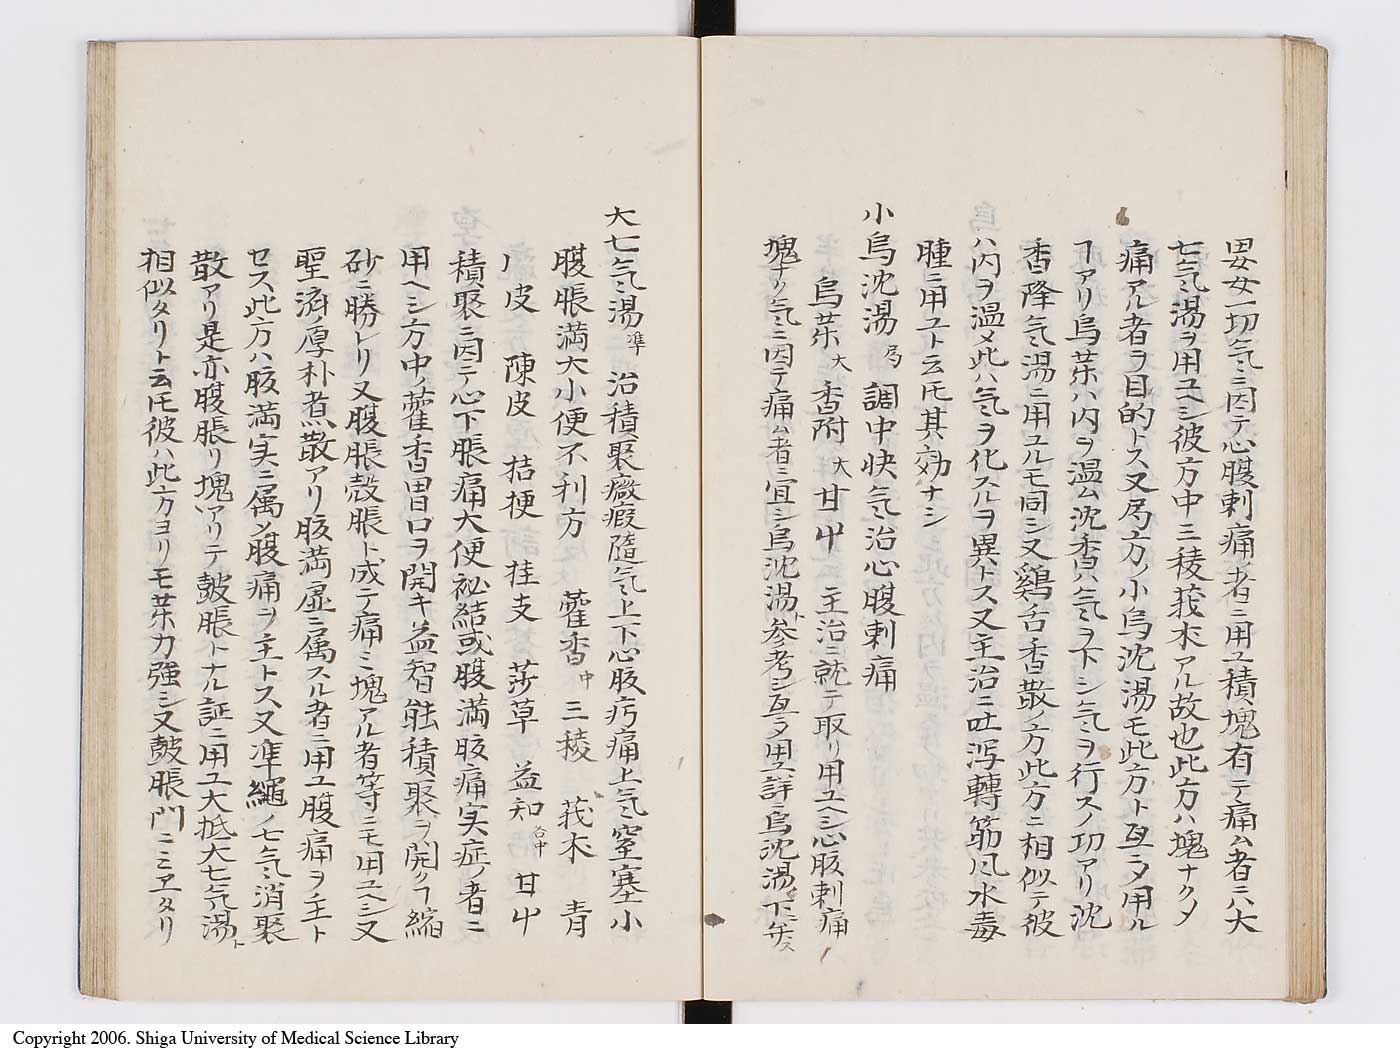 男女一切気ニ因テ心腹刺痛者ニ用ユ積塊有テ痛ム者ニハ大
七気湯ヲ用ユヘシ彼方中三稜莪朮アル故也此方ハ塊ナクメ
痛アル者ヲ目的トス又局方ノ小烏沈湯モ此方ト互ニメ用ル
ヿアリ烏茱ハ内ヲ温ム沈香ハ気ヲ下シ気ヲ行スノ功アリ沈
香降気湯ニ用ユルモ同シ又鷄舌香散ノ方此方ニ相似テ彼
ハ内ヲ温メ此ハ気ヲ化スルヲ異トス又主治ニ吐瀉轉筋風水毒
腫ニ用ユト云圧其効ナシ
小烏沈湯 局 調中快気治心腹刺痛
烏茱 大 香附 大 甘艸 主治ニ就テ取リ用ユヘシ心腹刺痛
塊ナク気ニ因テ痛ム者ニ宜シ烏沈湯ト参考シ互ニメ用ユ詳烏沈湯下ニ
大七気湯 準 治積聚癥瘕隨気上下心腹㽲痛上気窒塞小
腹脹満大小便不利方 藿香 中 三稜 莪朮 青
皮 陳皮 桔梗 桂支 莎草 益知 各中 甘艸
積聚ニ因テ心下脹痛大便祕結或腹満腹痛実症ノ者ニ
用ヘシ方中ノ藿香胃口ヲ開キ益智能積聚ヲ開クヿ縮
砂ニ勝レリ又腹脹殻脹ト成テ痛ミ塊アル者等ニモ用ユヘシ又
聖済ノ厚朴煮散アリ腹満虚ニ属スル者ニ用ユ腹痛ヲ主ト
セス此方ハ腹満実ニ属メ腹痛ヲ主トス又準繩ノ七気消聚
散アリ是亦腹脹リ塊アリテ皷脹トナル証ニ用ユ大抵大七気湯ト
相似タリト云圧彼ハ此方ヨリモ茱力強シ又皷脹門ニミエタリ
Copyright 2006. Shiga University of Medical Science Library